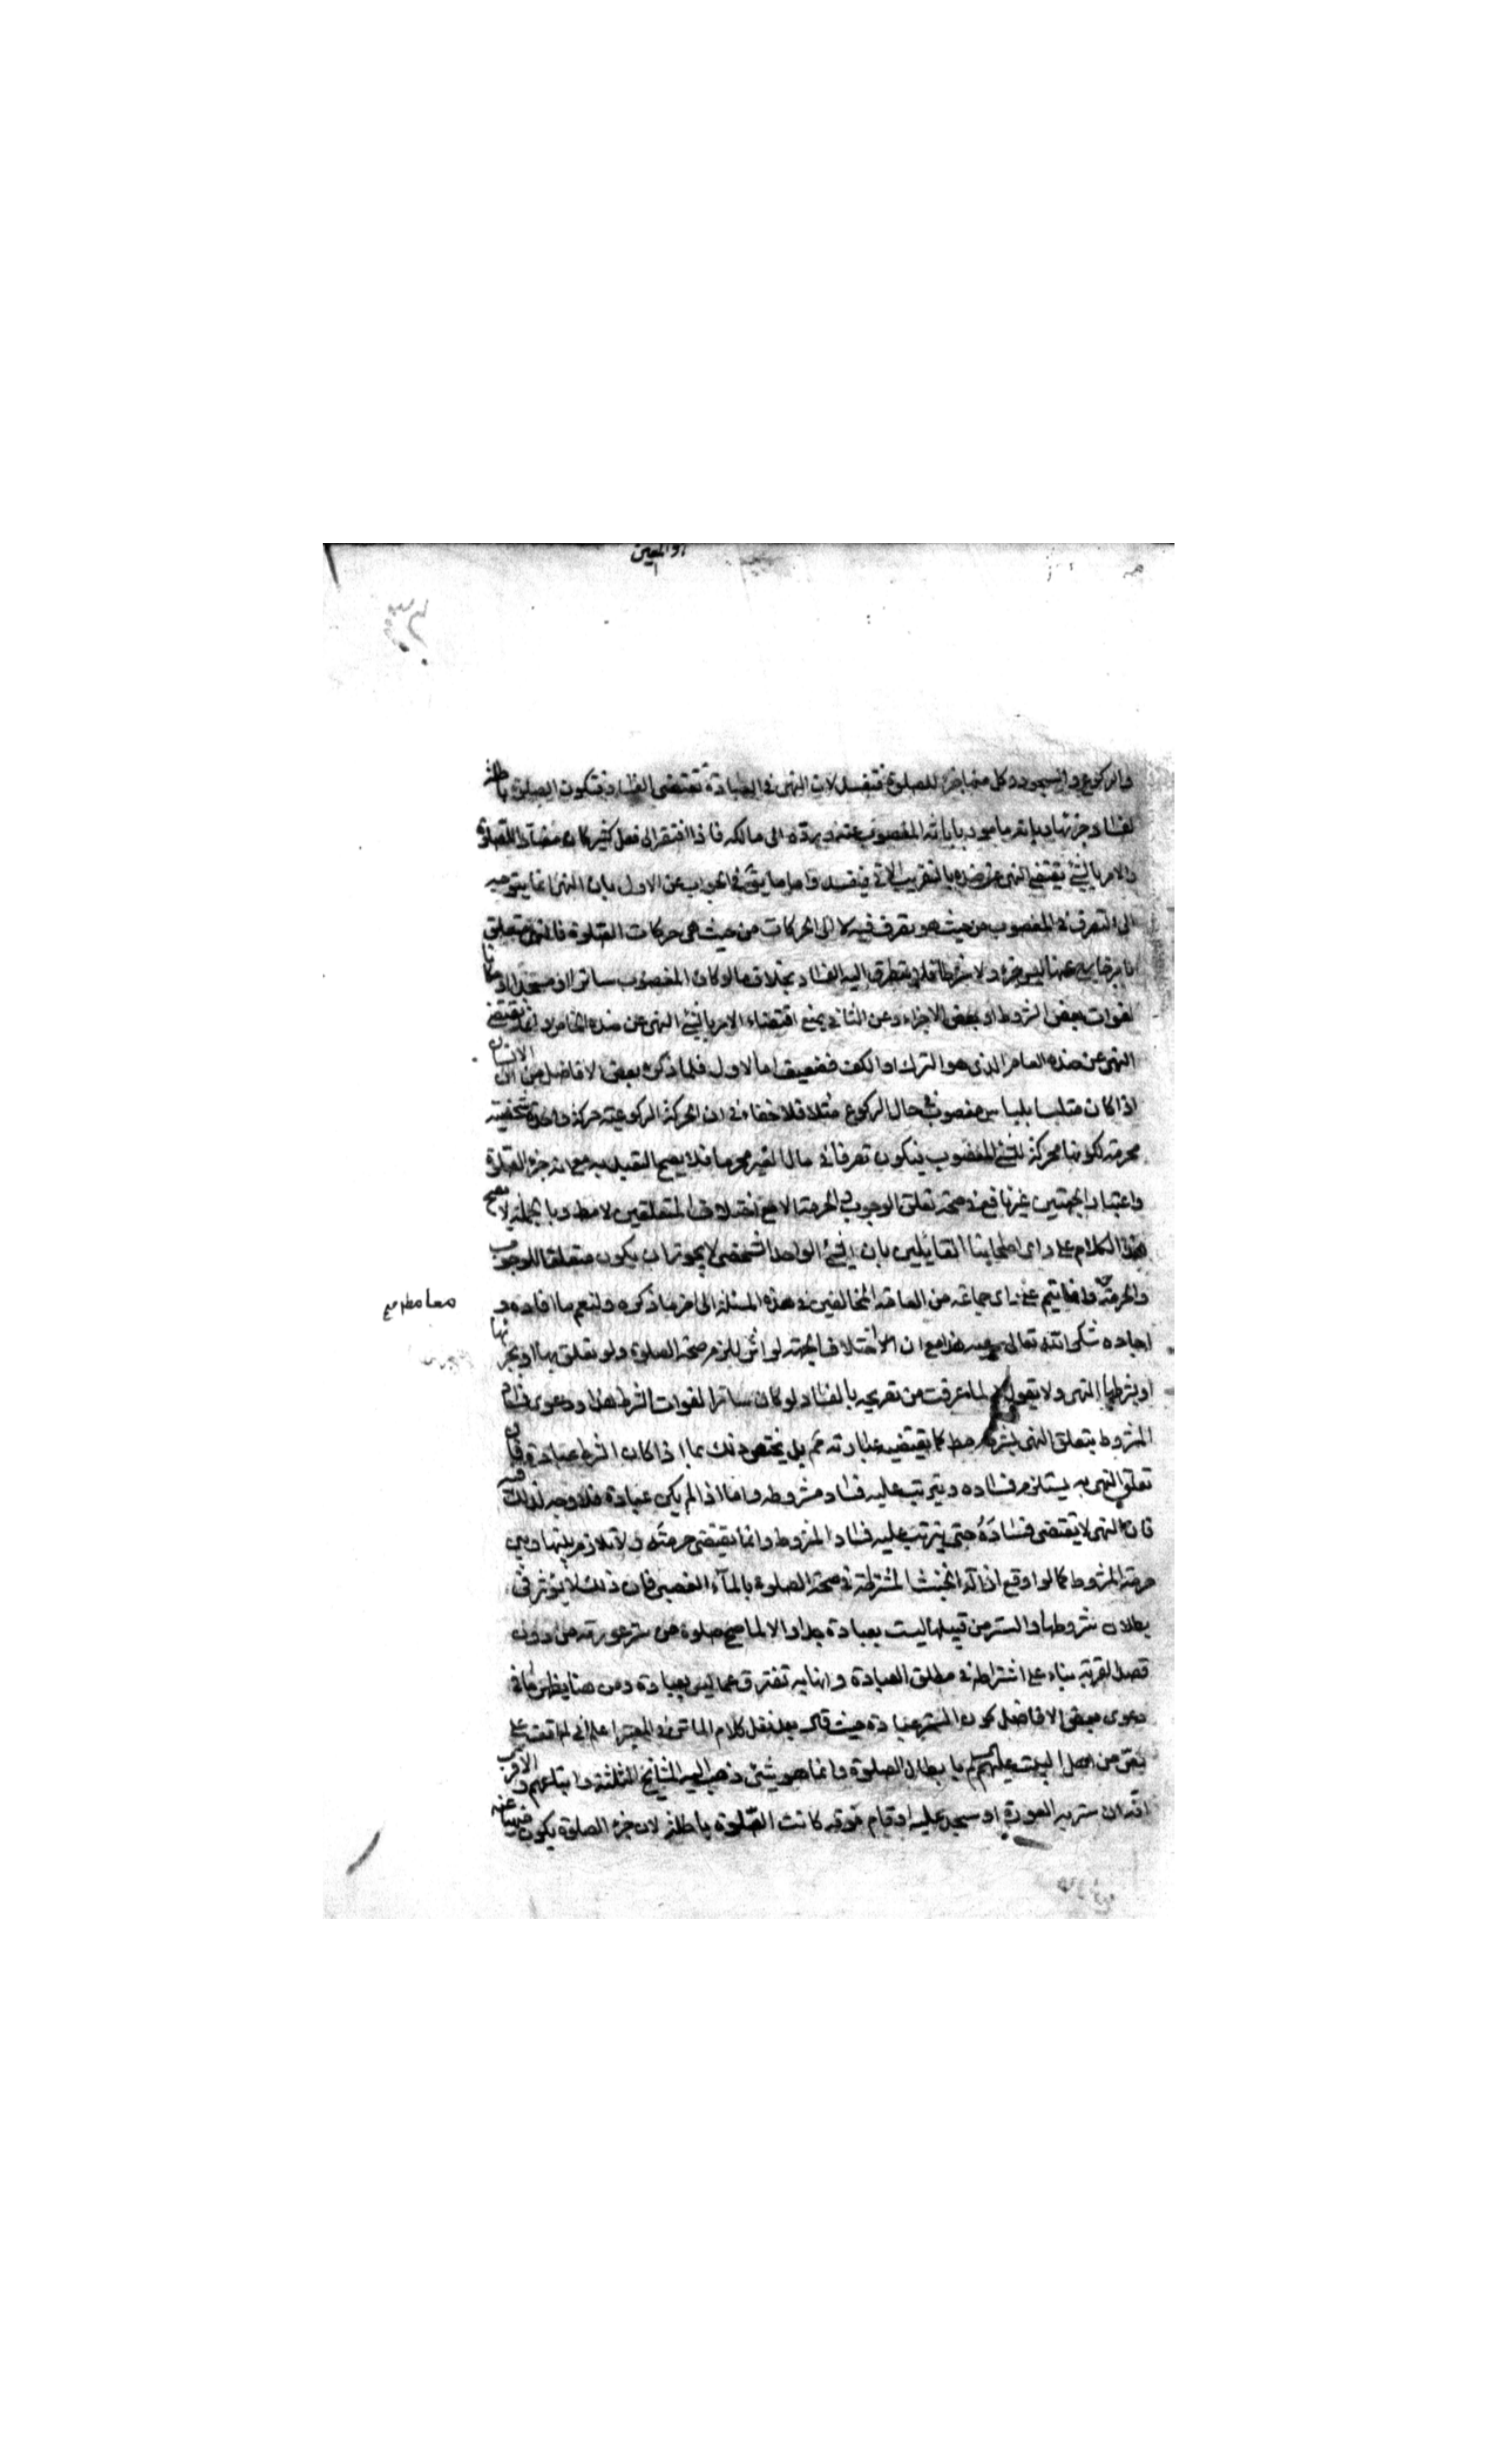 والركوع والسجود وكل منها جزء للصلوة فتفسد لان النهى فى العبادة تقتضى الفساد فتكون الصلوة باطلة
لفساد جزئها وبانه مأمور بابانة المغصوب عنه ورده الى مالكه فاذا افتقر الى فعل كثير كان مضادا للصلوة
والامر بالشئ يقتضى النهى عن ضده بالتقريب الاتى فيفسد واما ما يق فى الجواب عن الاول بان النهى انما يتوجه
الى التصرف فى المغصوب من حيث هو تصرف فيه لا الى الحركات من حيث هى حركات الصلوة فالنهى متعلق
بامر خارج عنها ليس جزء ولا شرطا فلا يتطرق اليه الفساد بخلاف ما لو كان المغصوب ساترا او مسجدا او مكانا
لفوات بعض الشروط او بعض الاجزاء وعن الثانى بمنع اقتضاء الامر بالشئ النهى عن ضده الخاص وانما يقتضى
النهى عن ضده العام الذى هو الترك او الكف فضعيف اما الاول فلما ذكره بعض الافاضل من ان الانسان
اذا كان متلبسا بلباس مغصوب فى حال الركوع مثلا فلا خفاء فى ان الحركة الركوعية حركة واحدة شخصية
محرمة لكونها محركة للشئ المغصوب فيكون تصرفا فى مال الغير محرما فلا يصح التعبد به مع انه جزء الصلوة
واعتبار الجهتين غير نافع فى صحة تعلق الوجوب والحرمة الا مع اختلاف المتعلقين لا مط وبالجملة لا يصح
هذا الكلام على راى اصحابنا القائلين بان الشئ الواحد الشخصى لا يجوز ان يكون متعلقا للوجوب
والحرمة وانما يتم على راى جماعة من العامة المخالفين فى هذه المسئلة الى اخر ما ذكره ولنعم ما افاده و
معا مط صح
اجاده شكر الله تعالى سعيه هذا مع ان الاختلاف الجهة لو اثر للزم صحة الصلوة ولو تعلق بها او بجزئها
او بشرطها النهى ولا يقول لما عرفت من تصريحه بالفساد لو كان ساترا لفوات الشرط هذا ودعوى فساد
المشروط بتعلق النهى بشرطه مط كما يقتضيه عبارته مم بل يختص ذلك بما اذا كان الشرط عبادة فان
تعلق النهى به يستلزم فساده ويترتب عليه فساد مشروطه واما اذا لم يكن عبادة فلا وجه لذلك فيه
فان النهى لا يقتضى فساده حتى يترتب عليه فساد المشروط وانما يقتضى حرمته ولا تلازم بينها وبين
حرمة المشروط كما لو اوقع ازالة الخبث المشترطة فى صحة الصلوة بالماء الغصبى فان ذلك لا يؤثر فى
بطلان شروطها والستر من قبيلها ليست بعبادة جدا والا لما صح صلوة من ستر عورته من دون
قصد القربة بناء على اشتراطه فى مطلق العبادة وانها به تفترق عما ليس بعبادة ومن هنا يظهر ما فى
دعوى بعض الافاضل كون الستر عبادة حيث قال بعد نقل كلام الماتن فى المعتبر اعلم انى لم اقف على
نص من اهل البيت عليهم السلم بابطال الصلوة وانما هو شئ ذهب اليه المشايخ الثلثة واتباعهم والاقرب
انه ان ستر به العورة او سجد عليه او قام فوقه كانت الصلوة باطلة لان جزء الصلوة يكون منهيا عنه